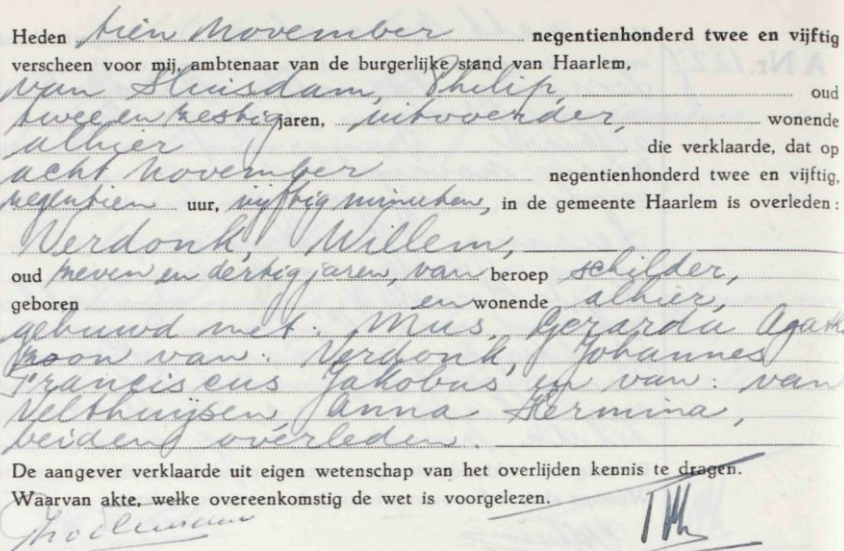 Heden tien november negentienhonderd twee en vijftig
verscheen voor mij, ambtenaar van de burgerlijke stand van Haarlem,
van Sluisdam, Philip, oud
twee en zestig jaren, uitvoerder, wonende
alhier die verklaarde, dat op
acht november negentienhonderd twee en vijftig,
negentien uur, vijftig minuten, in de gemeente Haarlem is overleden:
Verdonk, Willem,
oud zeven en dertig jaren, van beroep schilder,
geboren en wonende alhier,
gehuwd met: Mus, Gerarda Agatha
zoon van: Verdonk, Johannes
Franciscus Jakobus en van: van
Velthuijsen Anna Hermina,
beiden overleden.
De aangever verklaarde uit eigen wetenschap van het overlijden kennis te dragen.
Waarvan akte, welke overeenkomstig de wet is voorgelezen.